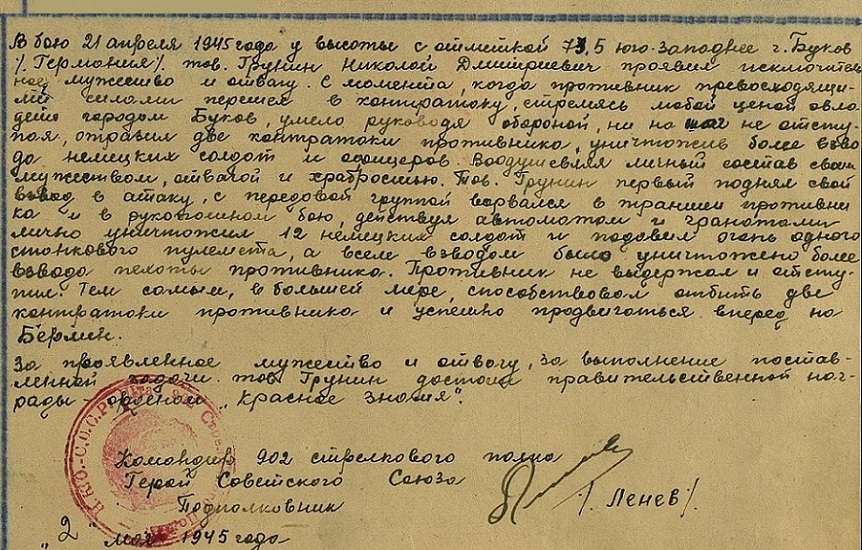 В бою 21 апреля 1945 года у высоты с отметкой 73,5 юго-западнее г. Буков
/Германия/. тов. Грунин Николай Дмитриевич проявил исключитель
ное мужество и отвагу. С момента, когда противник превосходящи-
ми силами перешел в контратаку, стремясь любой ценой овла
деть городом Буков, умело руководя обороной, ни на шаг не отсту-
пая, отразил две контратаки противника, уничтожив более взво
да немецких солдат и офицеров. Воодушевляя личный состав своим
мужеством, отвагой и храбростью. Тов. Грунин первый поднял свой
взвод в атаку, с передовой группой ворвался в траншеи противни
ка и в рукопашном бою, действуя автоматом и гранатами
лично уничтожил 12 немецких солдат и подавил огонь одного
станкового пулемета, а всем взводом было уничтожено более
взвода пехоты противника. Противник не выдержал и отсту-
пил. Тем самым, в большей мере, способствовал отбить две
контратаки противника и успешно продвигаться вперед на
Берлин.
За проявленное мужество и отвагу, за выполнение постав-
ленной задачи тов. Грунин достоин правительственной наг-
рады – орденом „Красное знамя".
Командир 902 стрелкового полка
Герой Советского Союза
Подполковник /Ленев/.
„2" мая 1945 года